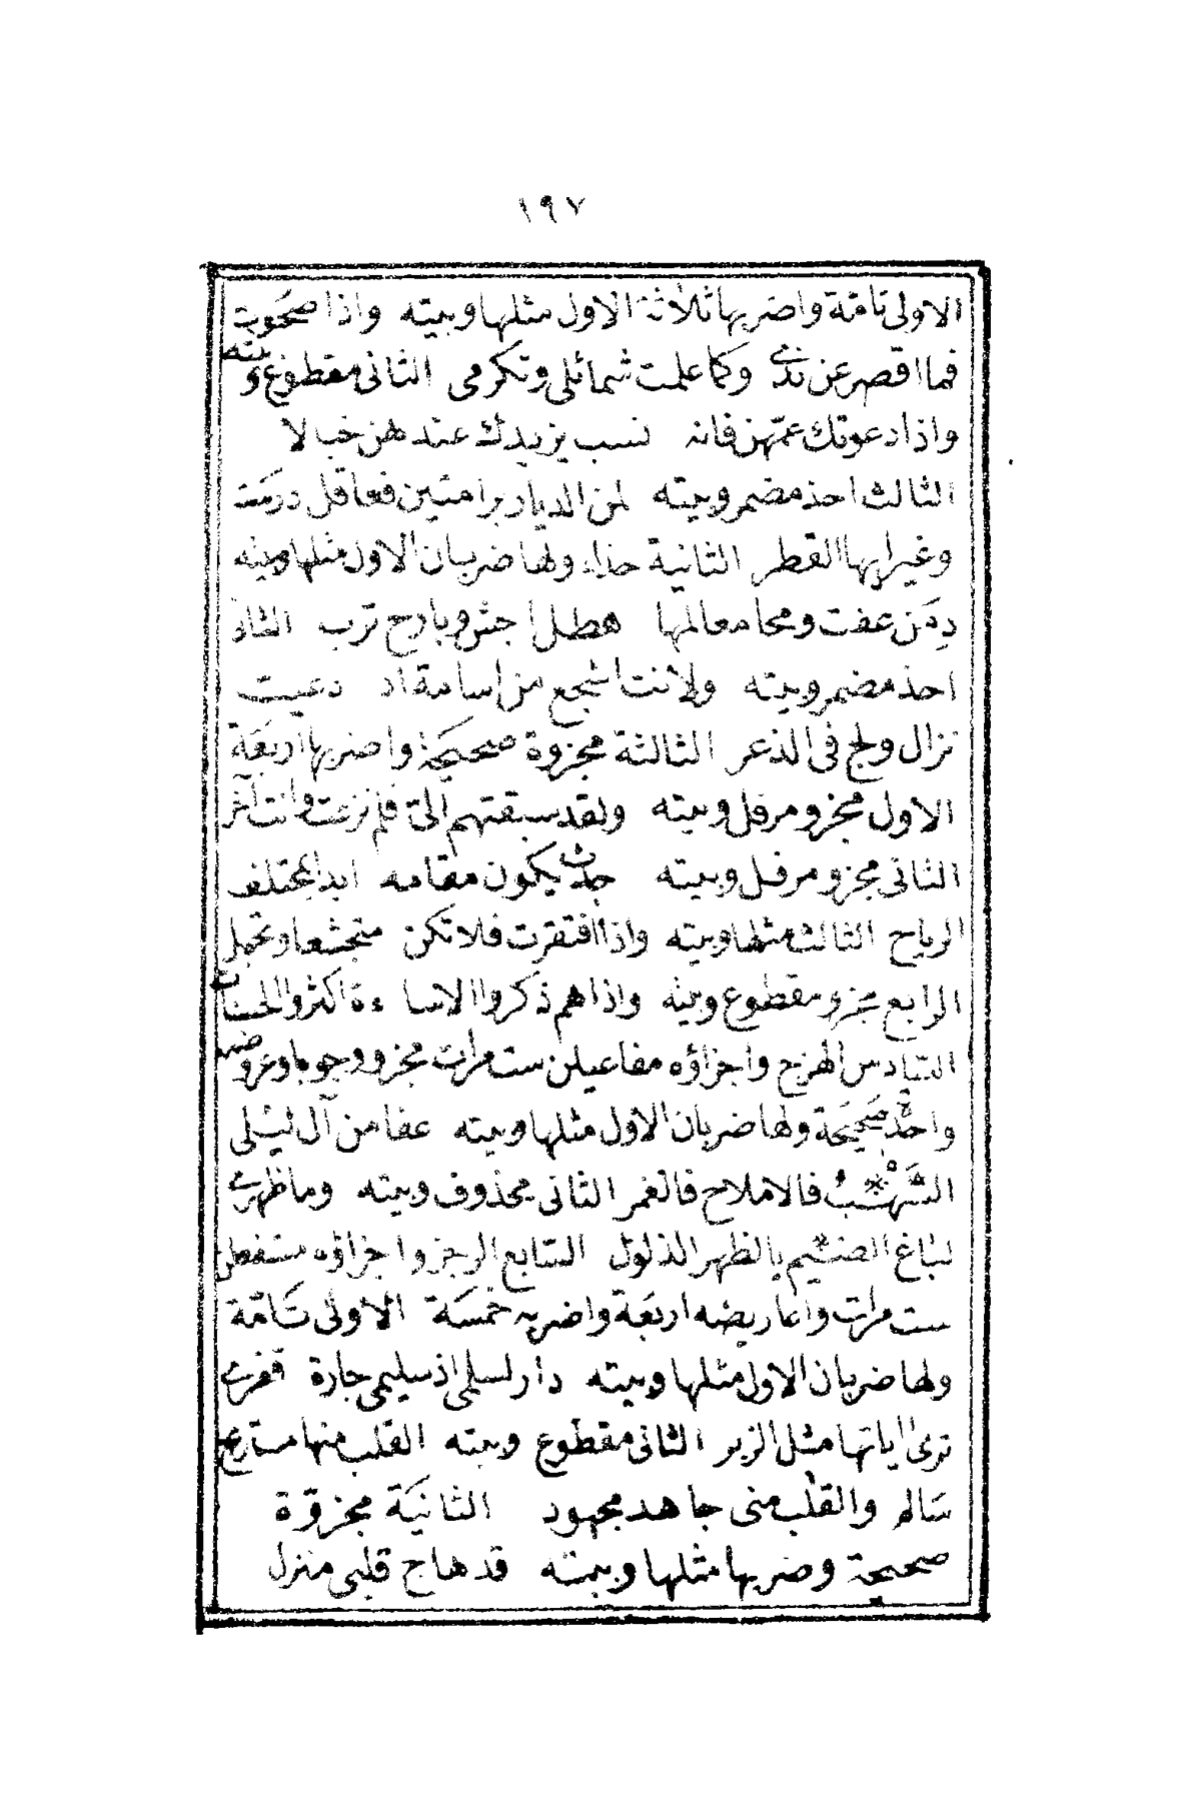 ١٩٧
الاولى تامّة واضربها ثلاثة الاول مثلها وبيته واذا صحوت
فما اقصر عن ندى وكما علمت شمائلى وتكرمى الثانى مقطوع وبيته
واذا دعوتك عمّهن فانه نسب يزيدك عندهن خبالا
الثالث احذ مضمر وبيته لمن الديار برامتين فعاقل درست
وغير ايها القطر الثانية حذاء ولها ضربان الاول مثلها وبيته
دِمَن عفت ومحا معالمها هطل اجش وبارح ترب الثانى
احذ مضمر وبيته ولانت اشجع من اسامة اذ دعيت
نزال ولج فى الذعر الثالثة مجزوة صحيحَة واضربها اربعَة
الاول مجزو مرفل وبيته ولقد سبقتهم الىّ فلم نزعت وانت آخر
الثانى مجزو مرفل وبيته جدث يكون مقامه ابدا بمختلف
الرياح الثالث مثلها وبيته واذا افتقرت فلا تكن متجشعا وتجمل
الرابع مجزو مقطوع وبيته واذا هم ذكروا الاساءة اكثروا الحسنات
السَّادس الهزج واجزاؤه مفاعيلن ست مرات مجزو وجوبا وعروضه
واحدة صَحيحَة ولها ضربان الاول مثلها وبيته عفا من آل ليلى
السَّهْب فالاملاح فالغمر الثانى محذوف وبيته وما ظهرى
لباغ الضيم بالظهر الذلول السَّابع الرجز واجزاؤه مستفعلن
ست مرات واعاريضه اربعَة واضربه خمسَة الاولى تَامّة
ولها ضربان الاول مثلها وبيته دار لسلمى اذ سليمى جارة قفرى
ترى اياتها مثل الزبر الثانى مقطوع وبيته القلب منها مستريح
سَالم والقلب منى جاهد مجهود الثانيَة مجزوّة
صحيحة وضربها مثلها وبيته قد هاج قلبى منزل